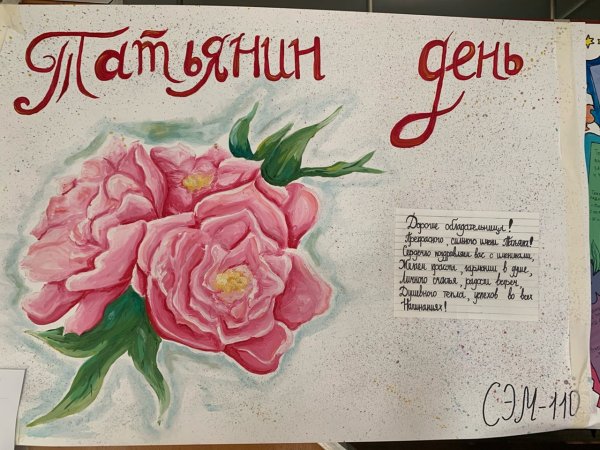 Татьянин день
Дорогие обладательницы!
Прекрасного, сильного имени Татьяна!
Сердечно поздравляем вас с именинами,
Желаем красоты, гармонии в душе,
Личного счастья, радости
Душевного тепла, успехов во всех
Начинаниях!
СЭМ-110